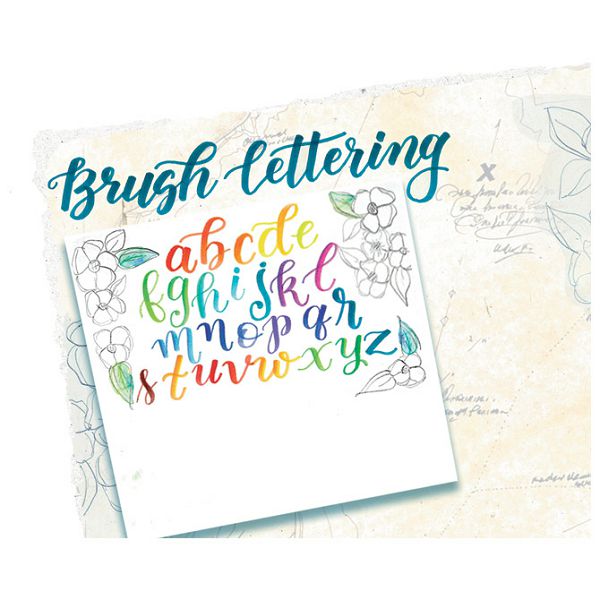 Brush lettering
abcde
fghijkl
mnopqr
stuvwxyz
x